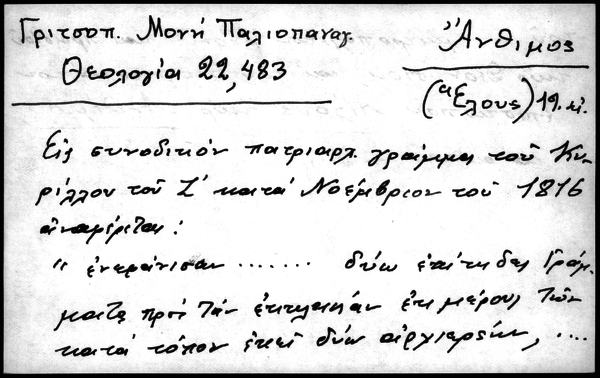 Γριτσοπ. Μονή Παλιοπαναγ.
Θεολογία 22,483
Ἄνθιμος
(Ἕλους) 19. αἰ.
Εἰς συνοδικόν πατριαρχ. γράμμα τοῦ Κυ-
ρίλλου τοῦ Ζ΄ κατά Νοέμβριον τοῦ 1816
ἀναφέρεται:
"ἐνεφάνισαν ....... δύω ἐπίτηδες Γράμ-
ματα πρός τήν ἐκκλησίαν ἐκ μέρους τῶν
κατά τόπον ἐκεῖ δύω ἀρχιερέων, ....